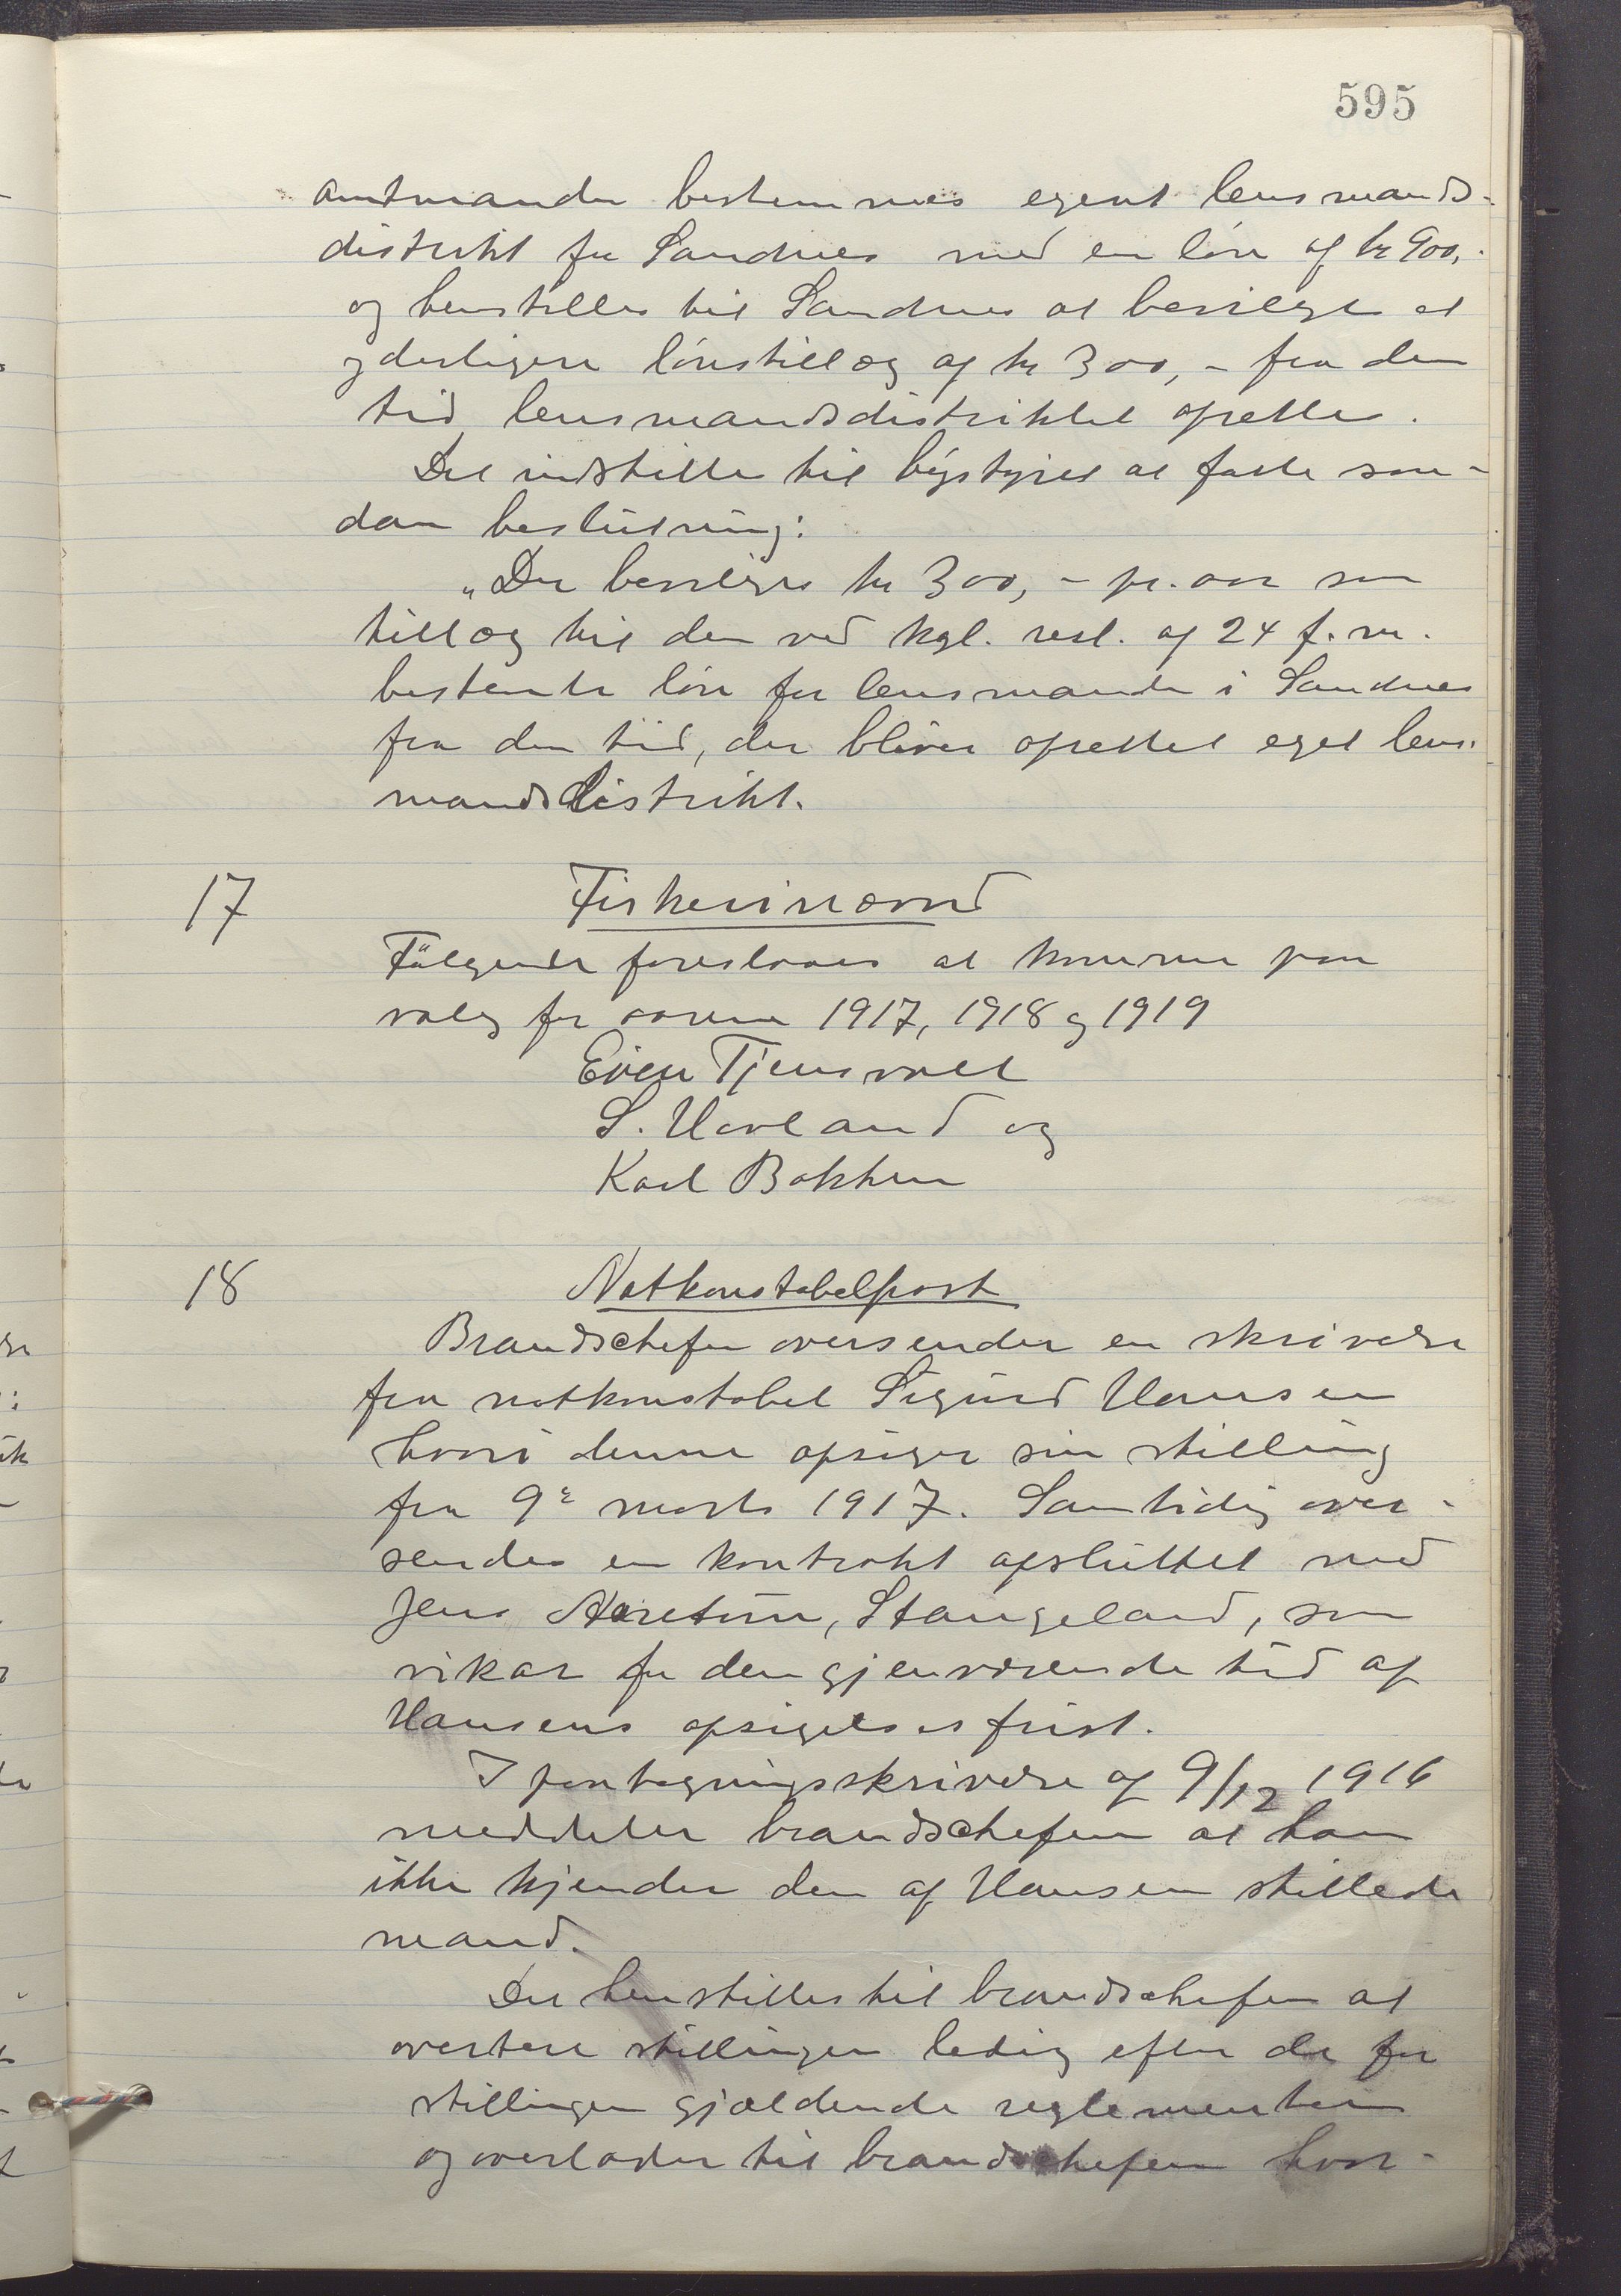 595
amtmanden bestemmes egent lensmands-
distrikt for Sandnes med en løn af kr 900,-
og henstilles til Sandnes at bevilge et
yderligere lønstillæg af kr 300,- fra den
tid lensmandsdistriktet oprettes.
Det indstilles til bystyret at fatte saa-
dan beslutning:
„Der bevilges kr 300,- pr. aar som
tillæg til den ved kgl. resl. af 24 f. m.
bestemte løn for lensmanden i Sandnes
fra den tid, der bliver oprettet eget lens-
mandsdistrikt.
17 Fiskerinævnd
Følgende foreslaaes at komme paa
valg for aarene 1917, 1918 og 1919
Even Tjensvold
S. Hovland og
Karl Bakken
18 Natkonstabelpost
Brandschefen oversender en skrivelse
fra natkonstabel Sigurd Hansen
hvori denne opsiger sin stilling
fra 9de marts 1917. Samtidig over-
sendes en kontrakt afsluttet med
Jens Aaretun, Stangeland, som
vikar for den gjenværende tid af
Hansens opsigelsesfrist.
I paategningsskrivelse af 9/12 1916
meddeler brandschefen at han
ikke kjender den af Hansen stillede
mand.
Der henstilles til brandschefen at
avertere stillingen ledig efter de for
stillingen gjældende reglementer
og overlader til brandschefen hvor-